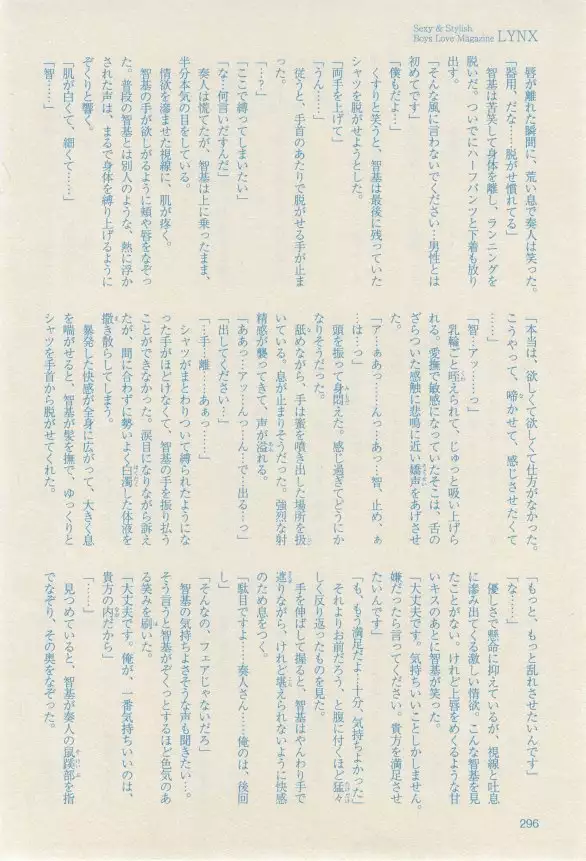 Sexy & Stylish
Boys Love Magazine LYNX
唇が離れた瞬間に、荒い息で奏人は笑った。
「器用、だな……脱がせ慣れてる」
智基は苦笑して身体を離し、ランニングを
脱いだ。ついでにハーフパンツと下着も放り
出す。
「そんな風に言わないでください…男性とは
初めてです」
「僕もだよ…」
くすりと笑うと、智基は最後に残っていた
シャツを脱がせようとした。
「両手を上げて」
「うん……」
従うと、手首のあたりで脱がせる手が止ま
った。
「…?」
「ここで縛ってしまいたい」
「な…何言いだすんだ」
奏人は慌てたが、智基は上に乗ったまま、
半分本気の目をしている。
情欲を滲ませた視線に、肌が疼く。
智基の手が欲しがるように頬や唇をなぞっ
た。普段の智基とは別人のような、熱に浮か
された声は、まるで身体を縛り上げるように
ぞくりと響く。
「肌が白くて、細くて……」
「智……」
「本当は、欲しくて欲しくて仕方がなかった。
こうやって、啼かせて、感じさせたくて
……」
「智…アッ……っ」
乳輪ごと咥えられて、じゅっと吸い上げら
れる。愛撫で敏感になっていたそこは、舌の
ざらついた感触に悲鳴に近い嬌声をあげさせ
た。
「ア…ぁあっ……んっ…あっ…智、止め、ぁ
…は…っ」
頭を振って身悶えた。感じ過ぎてどうにか
なりそうだった。
舐めながら、手は蜜を噴き出した場所を扱
いている。息が止まりそうだった。強烈な射
精感が襲ってきて、声が溢れる。
「ああっ…アッ…んっ…ん…で…出る…っ」
「出してください…」
「…手…離……あぁっ……」
シャツがまとわりついて縛られたようにな
った手がほどけなくて、智基の手を振り払う
ことができなかった。涙目になりながら訴え
たが、間に合わずに勢いよく白濁した体液を
撒き散らしてしまう。
暴発した快感が全身に広がって、大きく息
を喘がせると、智基が髪を撫で、ゆっくりと
シャツを手首から脱がせてくれた。
「もっと、もっと乱れさせたいんです」
「な……」
優しさで懸命に抑えているが、視線と吐息
に滲み出てくる激しい情欲。こんな智基を見
たことがない。けれど上唇をめくるような甘
いキスのあとに智基が笑った。
「大丈夫です。気持ちいいことしかしません。
嫌だったら言ってください。貴方を満足させ
たいんです」
「も、もう満足だよ…十分、気持ちよかった」
それよりお前だろう、と腹に付くほど猛々
しく反り返ったものを見た。
手を伸ばして握ると、智基はやんわり手で
遮りながら、けれど堪えられないように快感
のため息をつく。
「駄目ですよ……奏人さん……俺のは、後回
し」
「そんなの、フェアじゃないだろ」
智基の気持ちよさそうな声も聞きたい…。
そう言うと智基がぞくっとするほど色気のあ
る笑みを刷いた。
「大丈夫です。俺が、一番気持ちいいのは、
貴方の肉だから」
「……」
見つめていると、智基が奏人の鼠蹊部を指
でなぞり、その奥をなぞった。
296